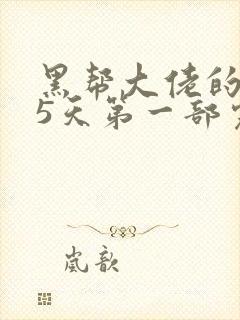 黑帮大佬的
5天第一部
岚歆